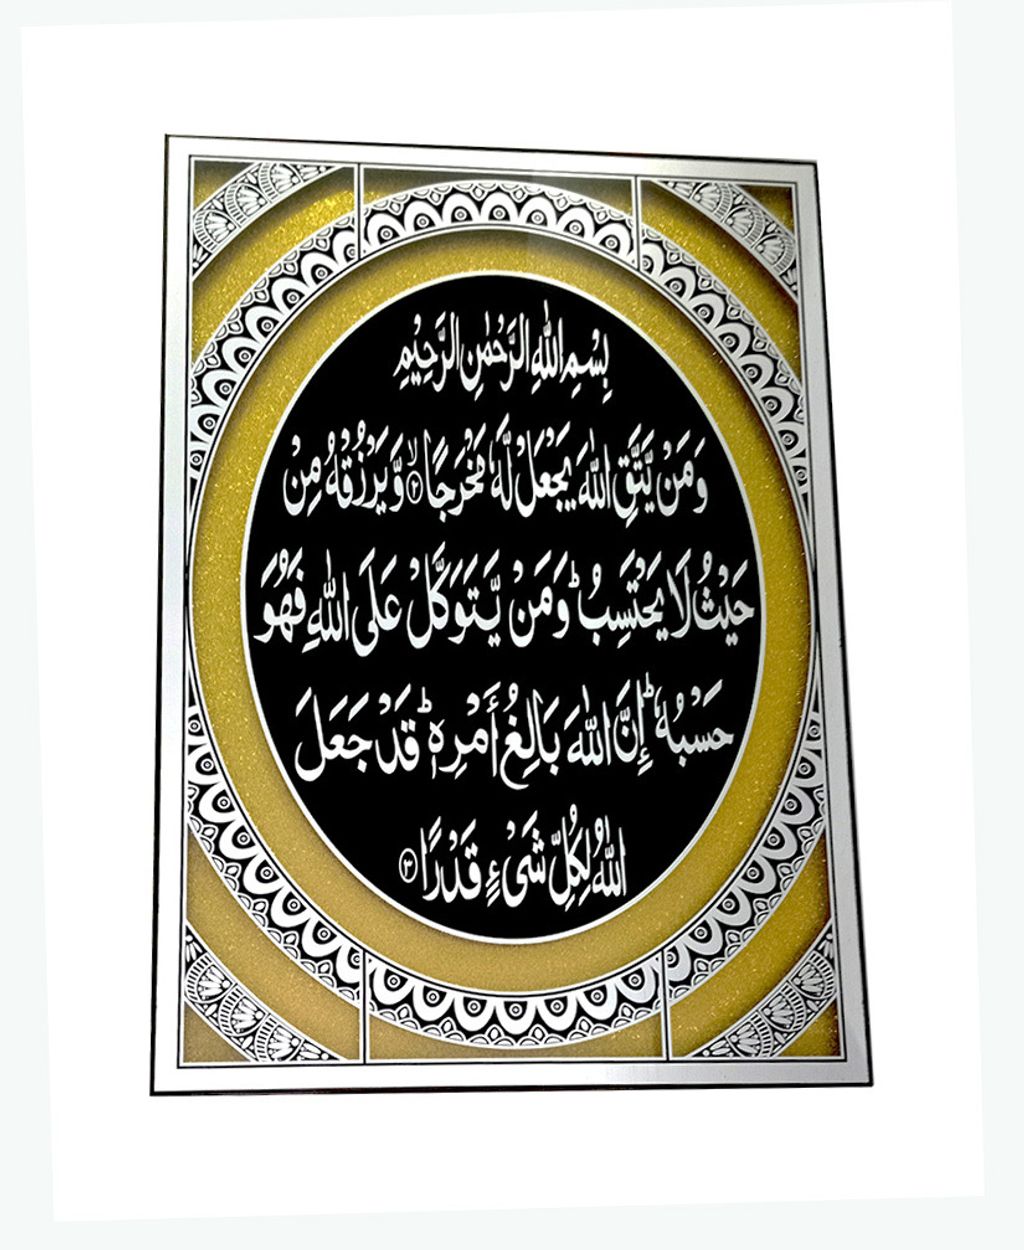 بِسْمِ اللّٰهِ الرَّحْمٰنِ الرَّحِيْمِ
وَمَنْ يَّتَّقِ اللّٰهَ يَجْعَلْ لَّهٗ مَخْرَجًا ۙ﴿۲﴾ وَّيَرْزُقْهُ مِنْ
حَيْثُ لَا يَحْتَسِبُ ؕ وَمَنْ يَّتَوَكَّلْ عَلَى اللّٰهِ فَهُوَ
حَسْبُهٗ ؕ إِنَّ اللّٰهَ بَالِغُ أَمْرِهٖ ؕ قَدْ جَعَلَ
اللّٰهُ لِكُلِّ شَىْءٍ قَدْرًا ﴿۳﴾